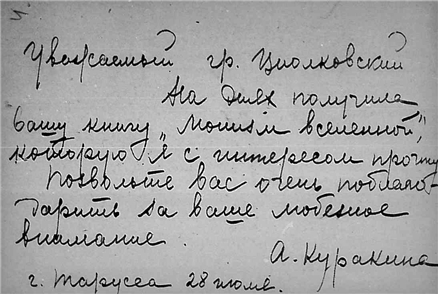 Уважаемый гр. Циолковский
На днях получила
Вашу книгу „Монизм вселенной",
которую я с интересом прочту
Позвольте вас очень поблаго-
дарить за ваше любезное
внимание.
А. Куракина
г. Таруса 28 июля.